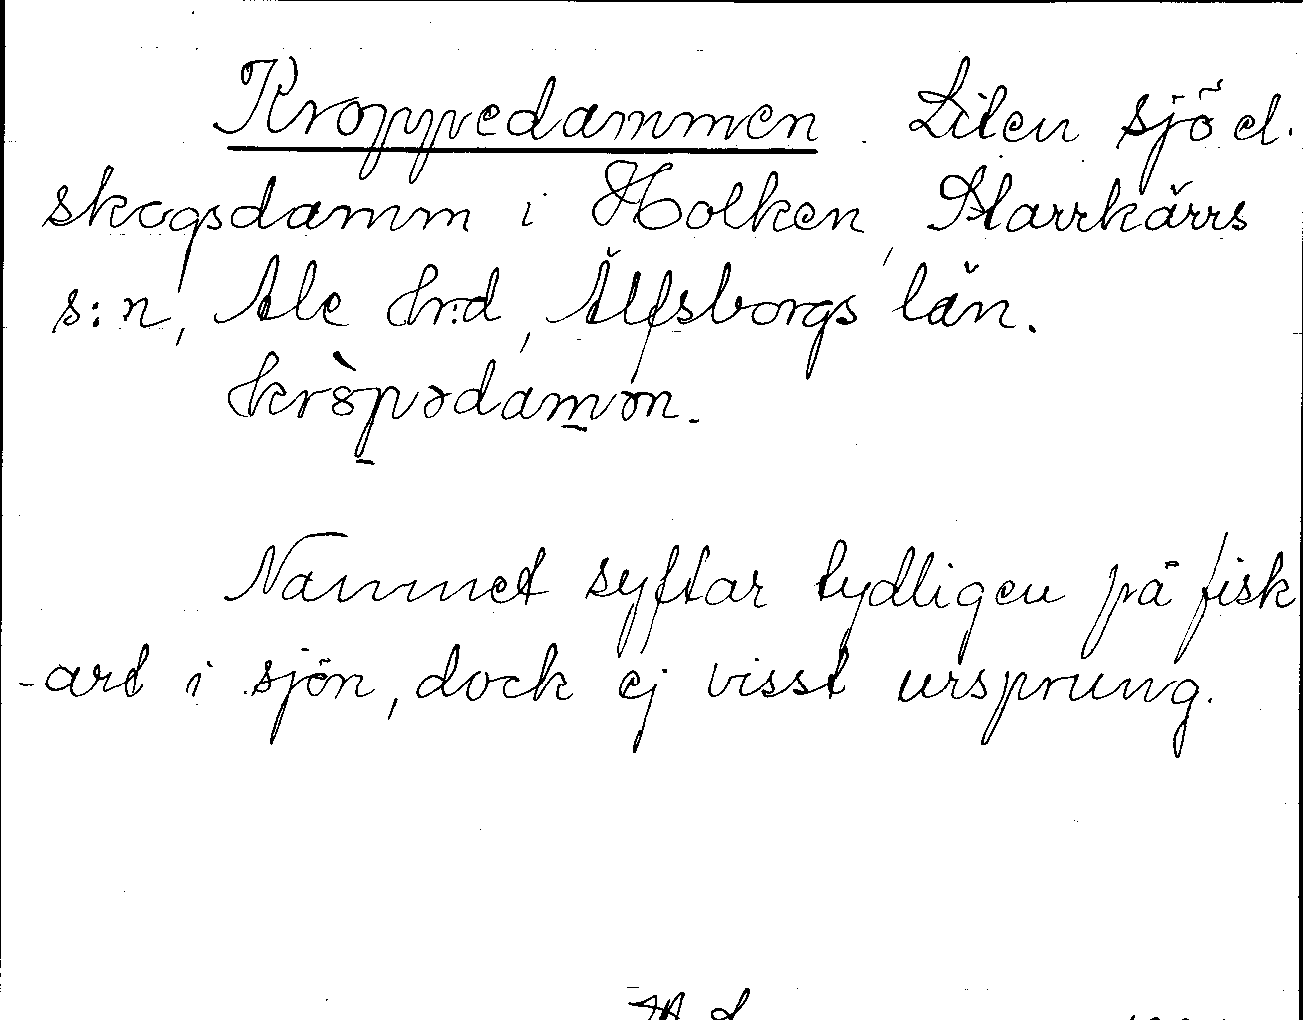 Kroppedammen. Liten sjö el.
skogsdamm i Holken, Starrkärrs
s:n, Ale hrd, Älfsborgs län.
kròpədamən.
Namnet syftar tydligen på fisk
-art i sjön, dock ej visst ursprung.